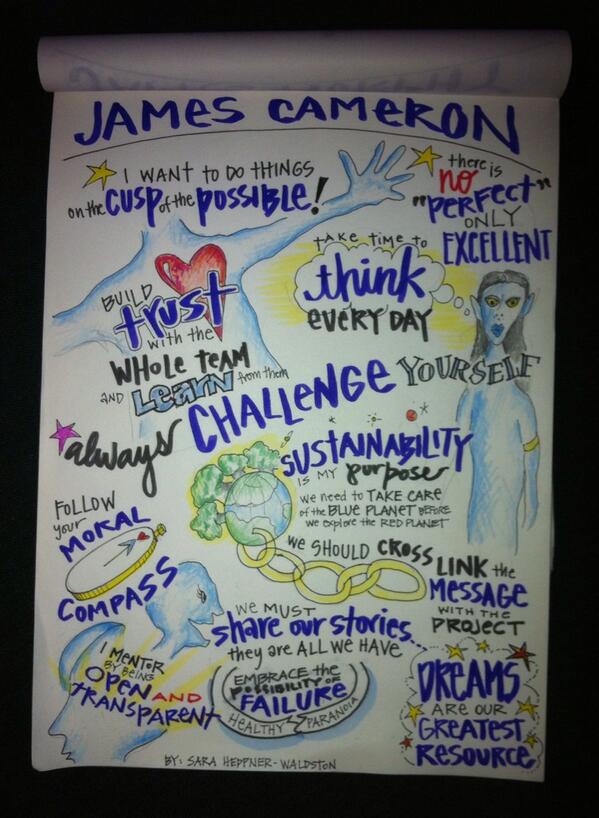 JAMES CAMERON
I WANT TO DO THINGS
on the CUSP of the POSSIBLE!
there is
NO
"PERFECT"
ONLY
EXCELLENT
TAKE TIME to
think
EVERY DAY
BUILD
trust
with the
WHOLE TEAM
AND LEARN from them
always CHALLENGE YOURSELF
SUSTAINABILITY
IS MY purpose
we need to TAKE CARE
of the BLUE PLANET BEFORE
we explore the RED PLANET
FOLLOW
your
MORAL
COMPASS
WE SHOULD CROSS LINK the
MESSAGE
WITH THE
PROJECT
WE MUST
share our stories...
they are ALL WE HAVE
I MENTOR
BY BEING
OPEN AND
TRANSPARENT
EMBRACE the
POSSIBILITY OF
FAILURE
HEALTHY PARANOIA
DREAMS
ARE OUR
GREATEST
RESOURCE
BY: SARA HEPPNER-WALDSTON